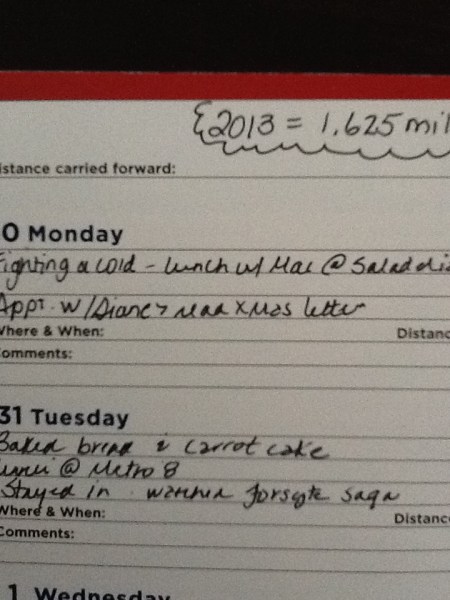 {2013 = 1.625 mil
istance carried forward:
0 Monday
Fighting a cold - lunch w/ Mac @ Salad
Appt. w/ Diane > read Xmas letter
Where & When: Distanc
omments:
31 Tuesday
Baked bread & carrot cake
@ Metro 8
Stayed in. watched Forsyte Saga
Where & When: Distanc
Comments:
1 Wednesday